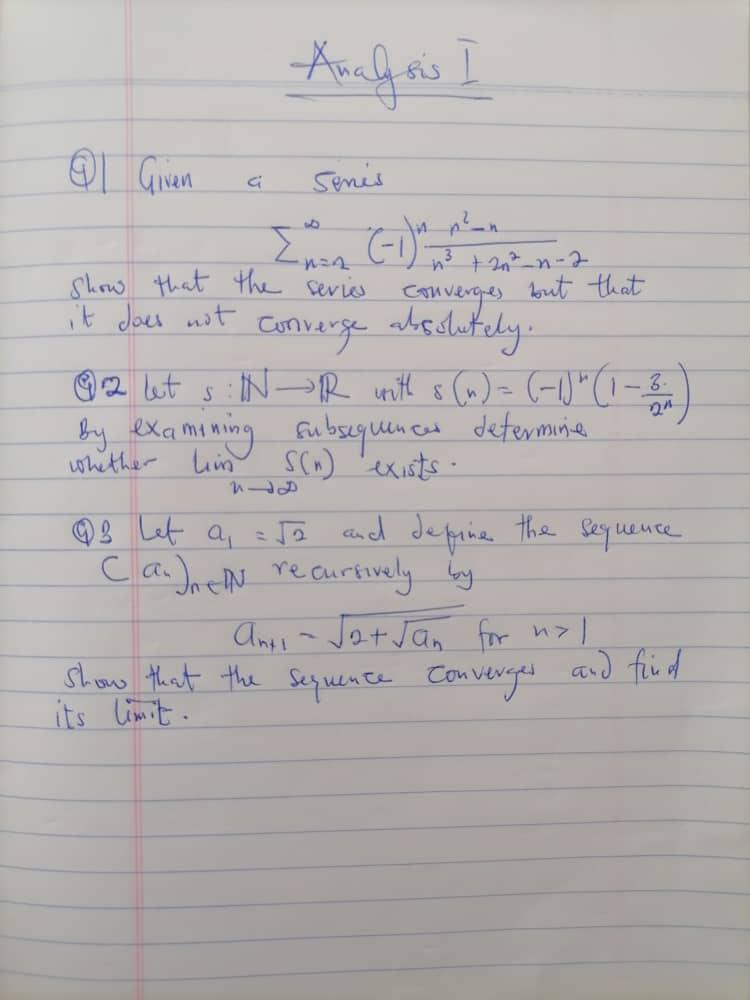 Analysis I
Q1 Given a series
∑_{n=2}^{∞} (-1)^n \frac{n^2-n}{n^3+2n^2-n-2}
Show that the series converges but that
it does not converge absolutely.
Q2 let s : ℕ → ℝ with s(n) = (-1)^n (1 - \frac{3}{2^n})
By examining subsequences determine
whether lim_{n→∞} S(n) exists.
Q3 Let a_1 = √2 and define the sequence
(a_n)_{n∈ℕ} recursively by
a_{n+1} - \sqrt{2+\sqrt{a_n}} for n > 1
Show that the sequence converges and find
its limit.